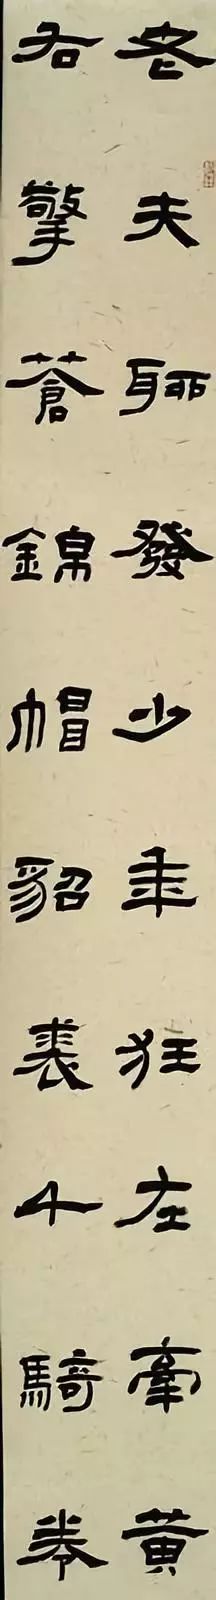 老夫聊發少年狂左牽黃
右擎蒼錦帽貂裘千騎卷